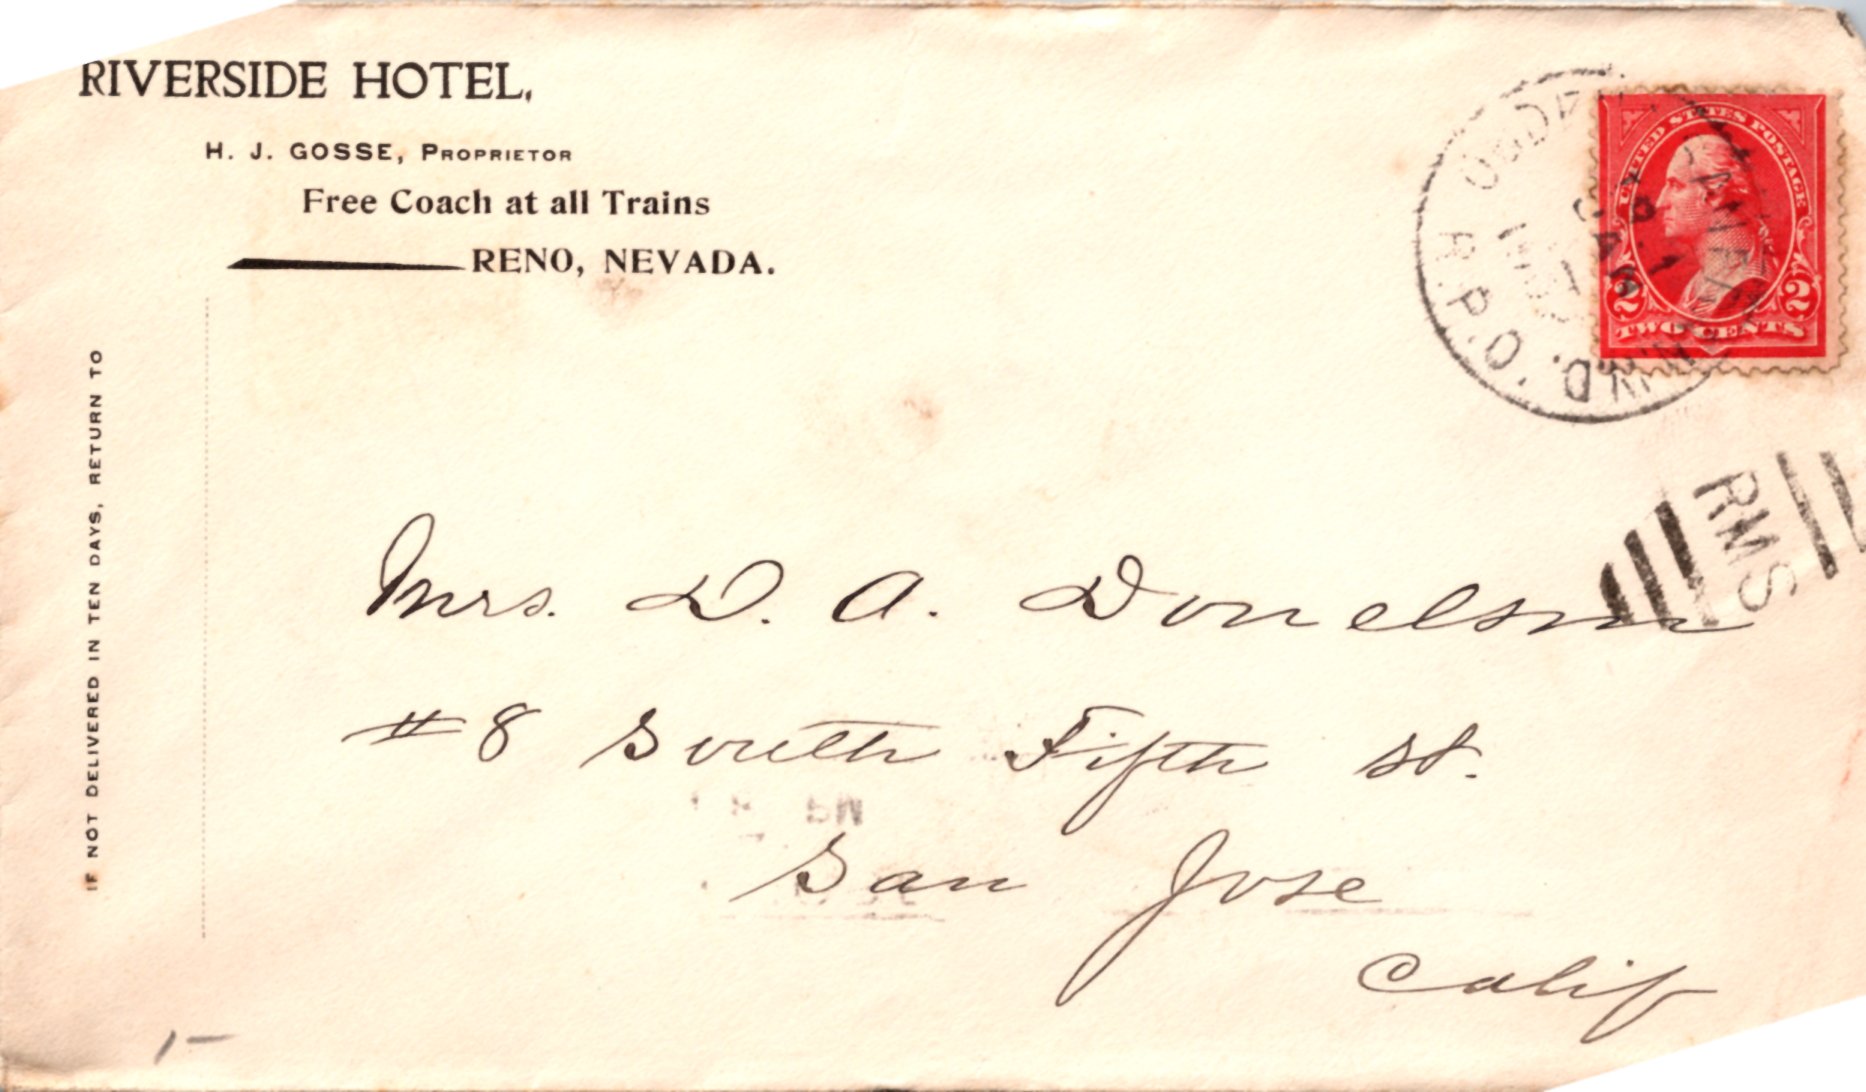 RIVERSIDE HOTEL,
H. J. GOSSE, PROPRIETOR
Free Coach at all Trains
RENO, NEVADA.
IF NOT DELIVERED IN TEN DAYS, RETURN TO
UNITED STATES POSTAGE
2 2
TWO CENTS
R.P.O.
RMS
Mrs. D. A. Donelson
#8 South Fifth St.
San Jose
Calif